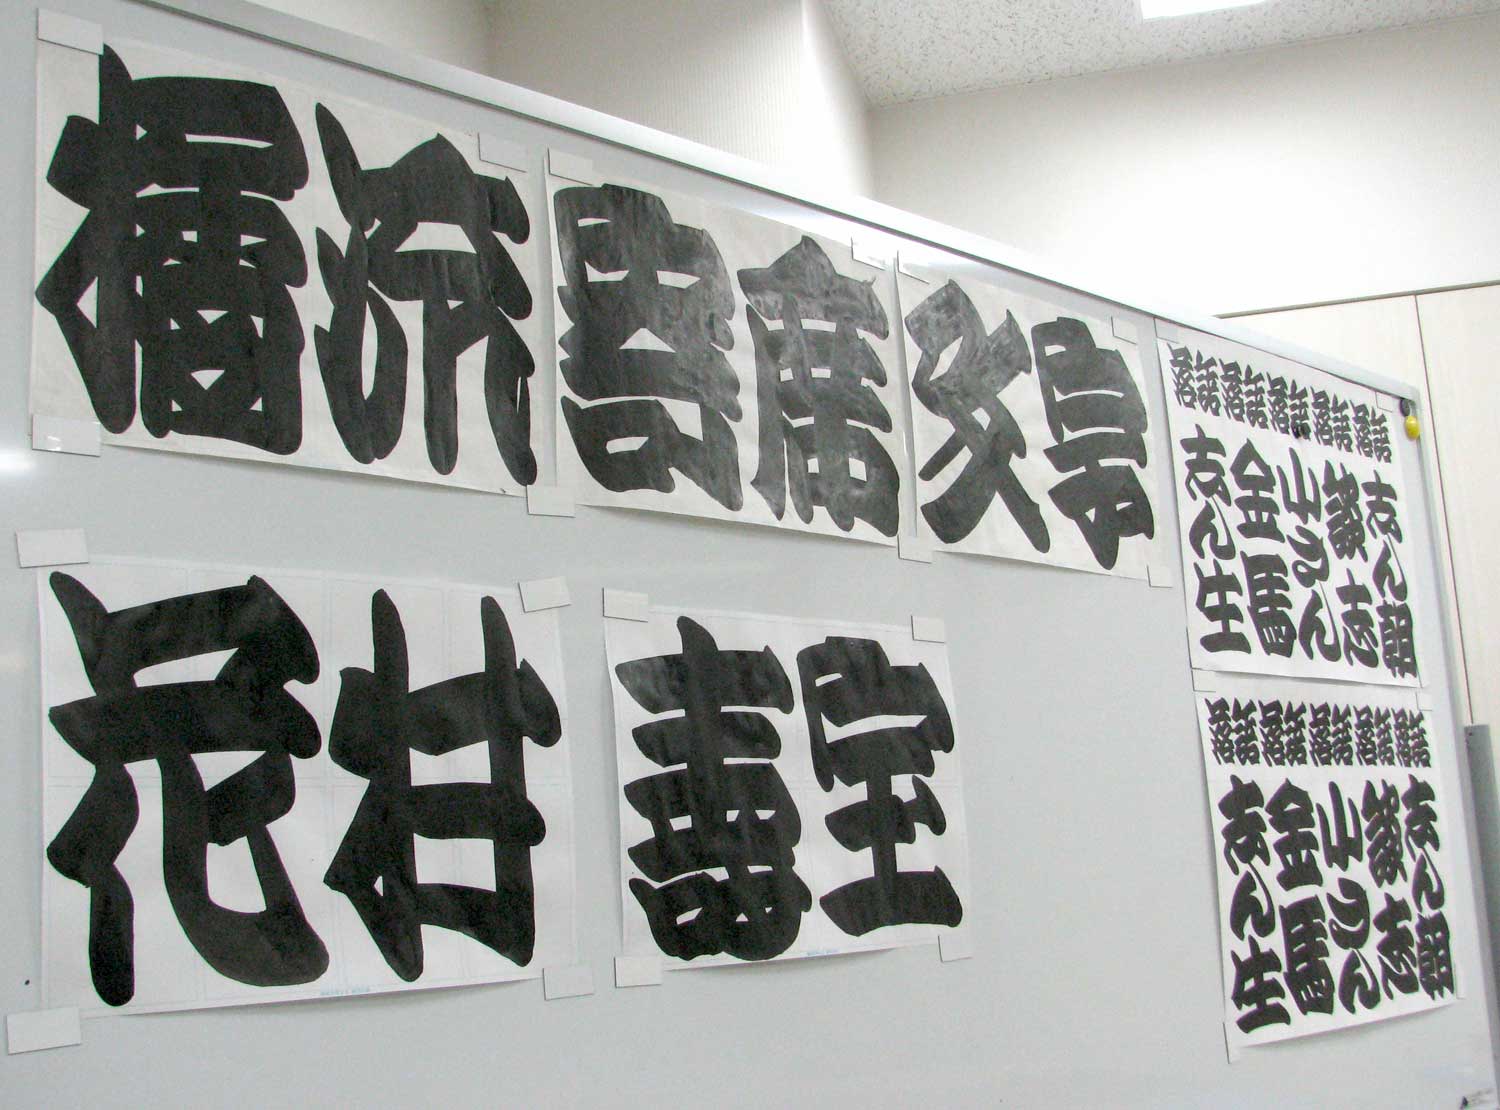 橘流
寄席
文字
花
壽宝
落語 落語 落語 落語 落語
志ん朝
談志
小さん
金馬
志ん生
落語 落語 落語 落語 落語
志ん朝
談志
小さん
金馬
志ん生